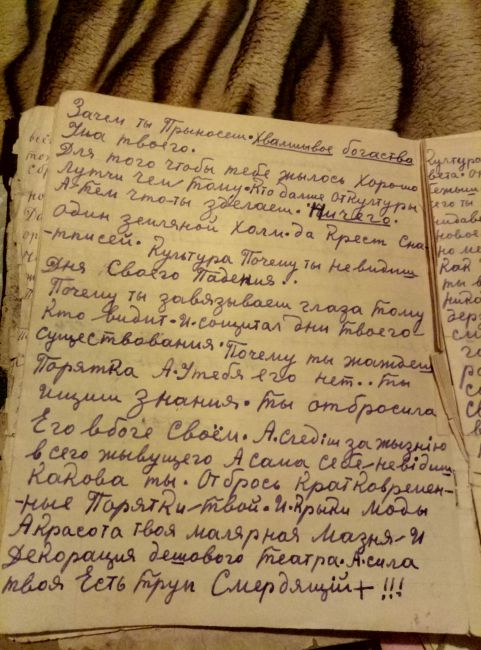 Зачем ты Прыносеш. Хвалшывое богаства
Ума твоего.
Для того чтобы тебе жылось Хорошо
лутчи чем тому. Кто далше от Культуры
А тем что-ты зделаеш. Ничего.
один земляной Холм. да Крест сна-
-тписей. Культура Почему ты не видиш
Дня Своего Падения..
Почему ты завязываеш глаза тому
Кто видит. И. сощитал дни твоего
существования. Почему ты жаждеш
Порятка А. У тебя его нет.. ты
ищиш знания. ты отбросила
Его в боге Своём. А. следіш за жызнію
всего жывущего А сама себе невідиш
какова ты. Отбрось Кратковремен-
-ные Порятки твой. И. Крыки моды
А красота твоя малярная мазня И
Декорация дешового театра. А. сила
твоя Есть труп Смердящій + !!!